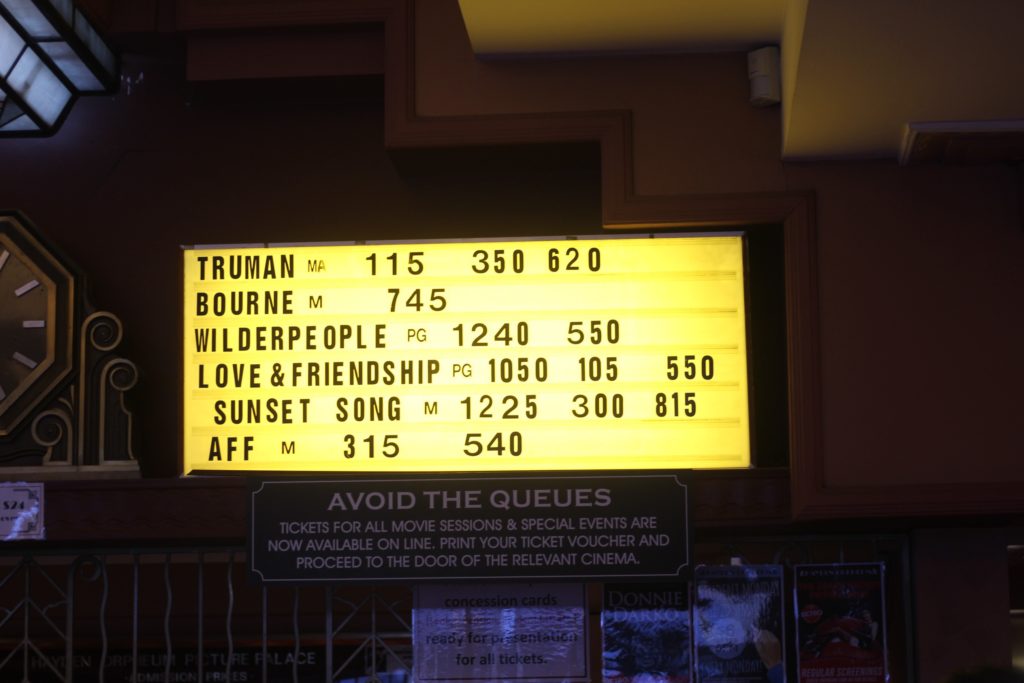 TRUMAN MA 115 350 620
BOURNE M 745
WILDERPEOPLE PG 1240 550
LOVE & FRIENDSHIP PG 1050 105 550
SUNSET SONG M 1225 300 815
AFF M 315 540
AVOID THE QUEUES
TICKETS FOR ALL MOVIE SESSIONS & SPECIAL EVENTS ARE
NOW AVAILABLE ON LINE. PRINT YOUR TICKET VOUCHER AND
PROCEED TO THE DOOR OF THE RELEVANT CINEMA.
$24
concession cards
ready for presentation
for all tickets.
DONNIE
DARKO
REGULAR SCREENINGS
HAYDEN ORPHEUM PICTURE PALACE
ADMISSION PRICES